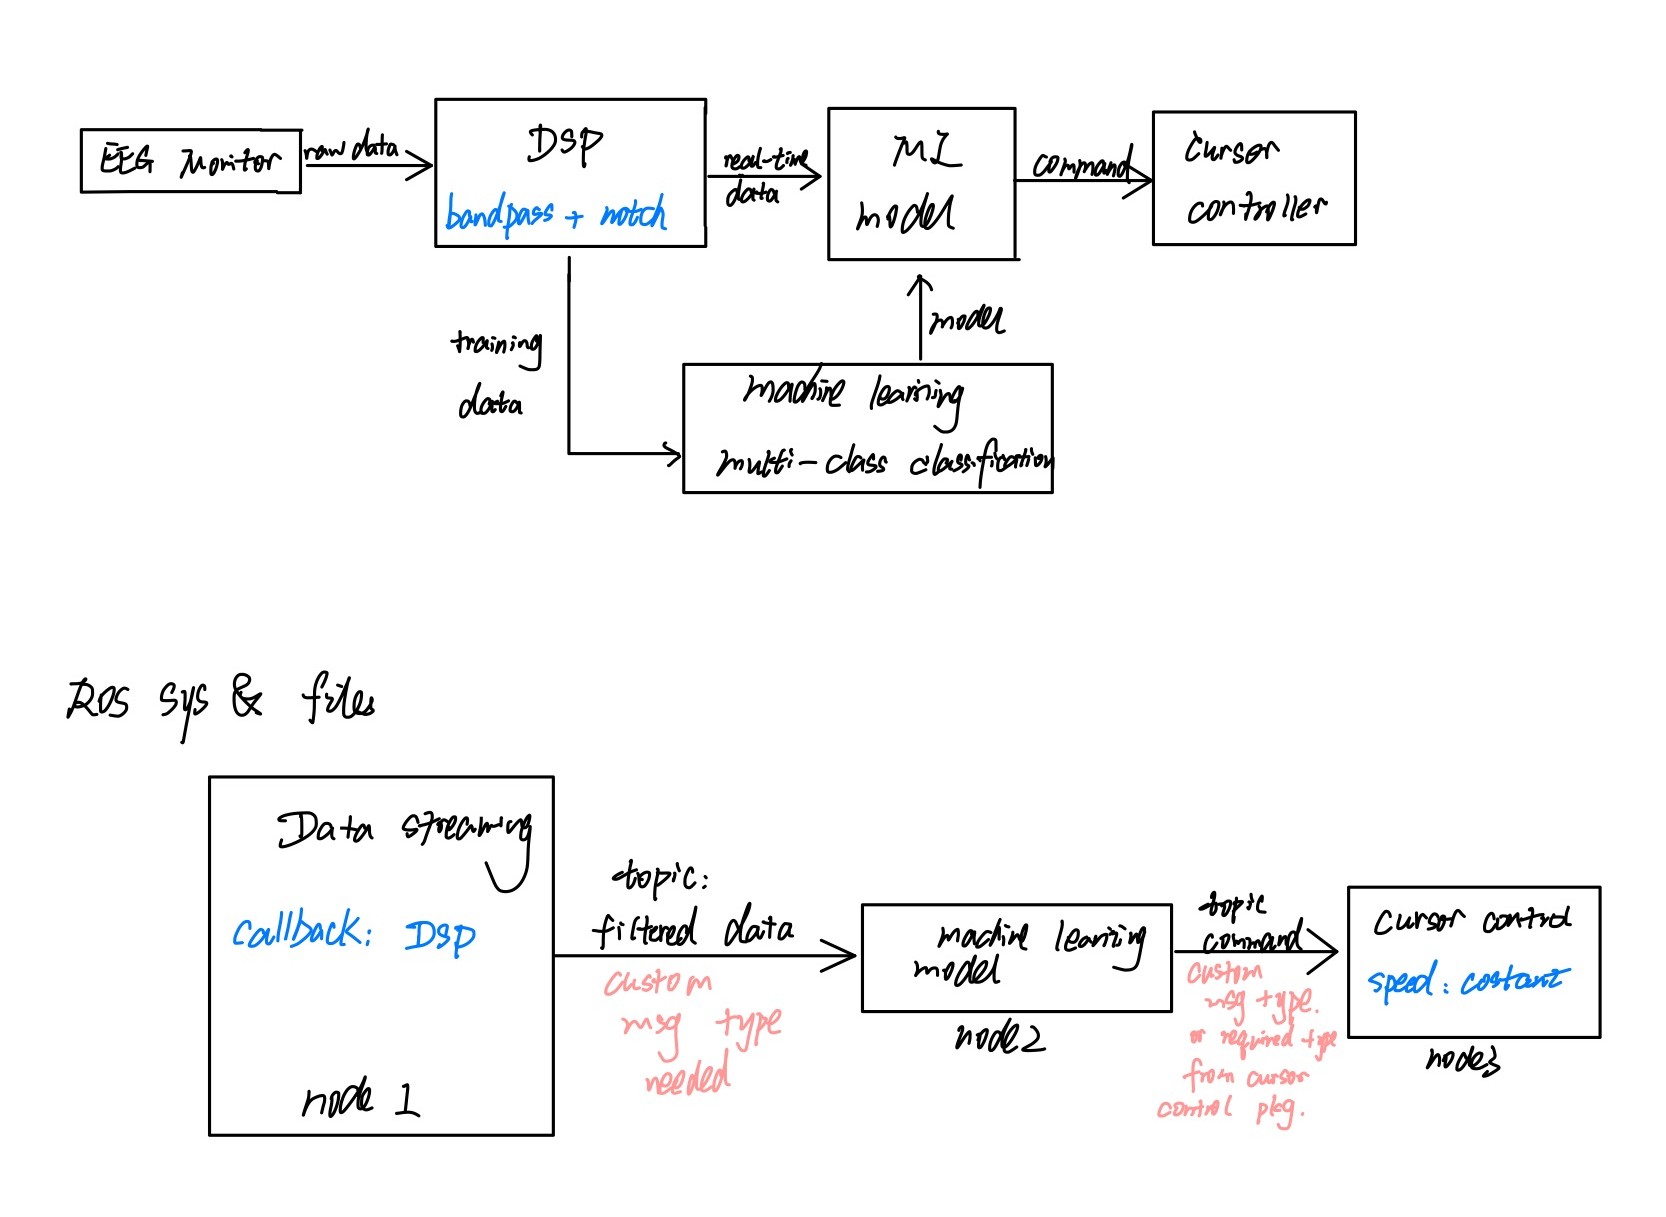 EEG Monitor
raw data
DSP
bandpass + notch
real-time
data
MI
model
command
Cursor
controller
training
data
model
machine learning
multi-class classification
ROS sys & files
Data streaming
callback: DSP
node 1
topic:
filtered data
custom
msg type
needed
machine learning
model
node2
topic
command
custom
msg type.
or required type
from cursor
control pkg.
cursor control
speed: costant
node3